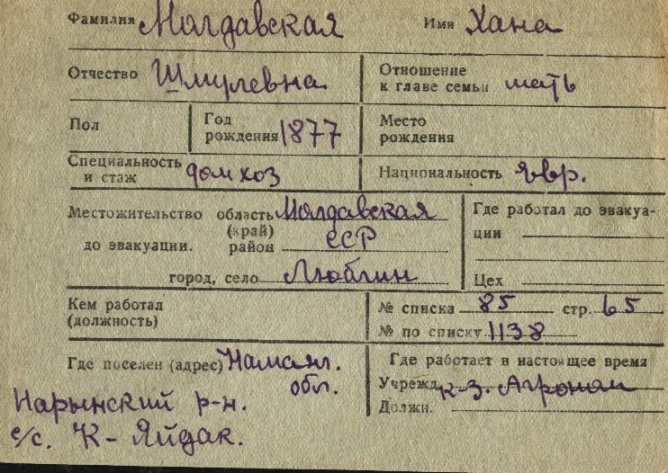 Фамилия Молдавская Имя Хана
Отчество Шмулевна Отношение к главе семьи мать
Пол Год рождения 1877 Место рождения
Специальность и стаж домхоз Национальность Явр.
Местожительство до эвакуации. область (край) Молдавская
район ССР
город, село Люблин
Где работал до эвакуации
Цех
Кем работал (должность)
№ списка 85 стр. 65
№ по списку 1138
Где поселен (адрес) Наманг. обл.
Нарынский р-н.
с/с. К-Яйдак.
Где работает в настоящее время
Учрежд. к-з. Агроном
Должн.